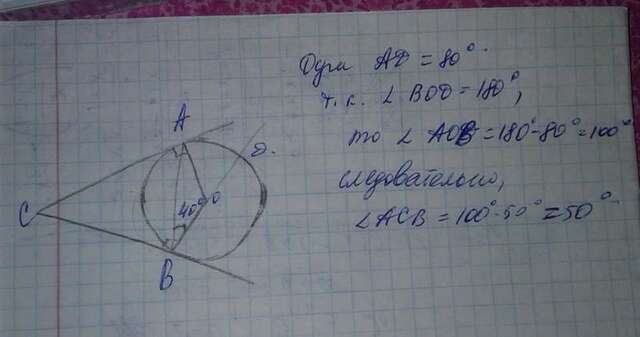 Дуга AD = 80°.
т.к. ∠ BOD = 180°,
то ∠ AOB = 180°-80° = 100°
следовательно,
∠ACB = 100°-50° = 50°.
A
D.
C
40°
O
B